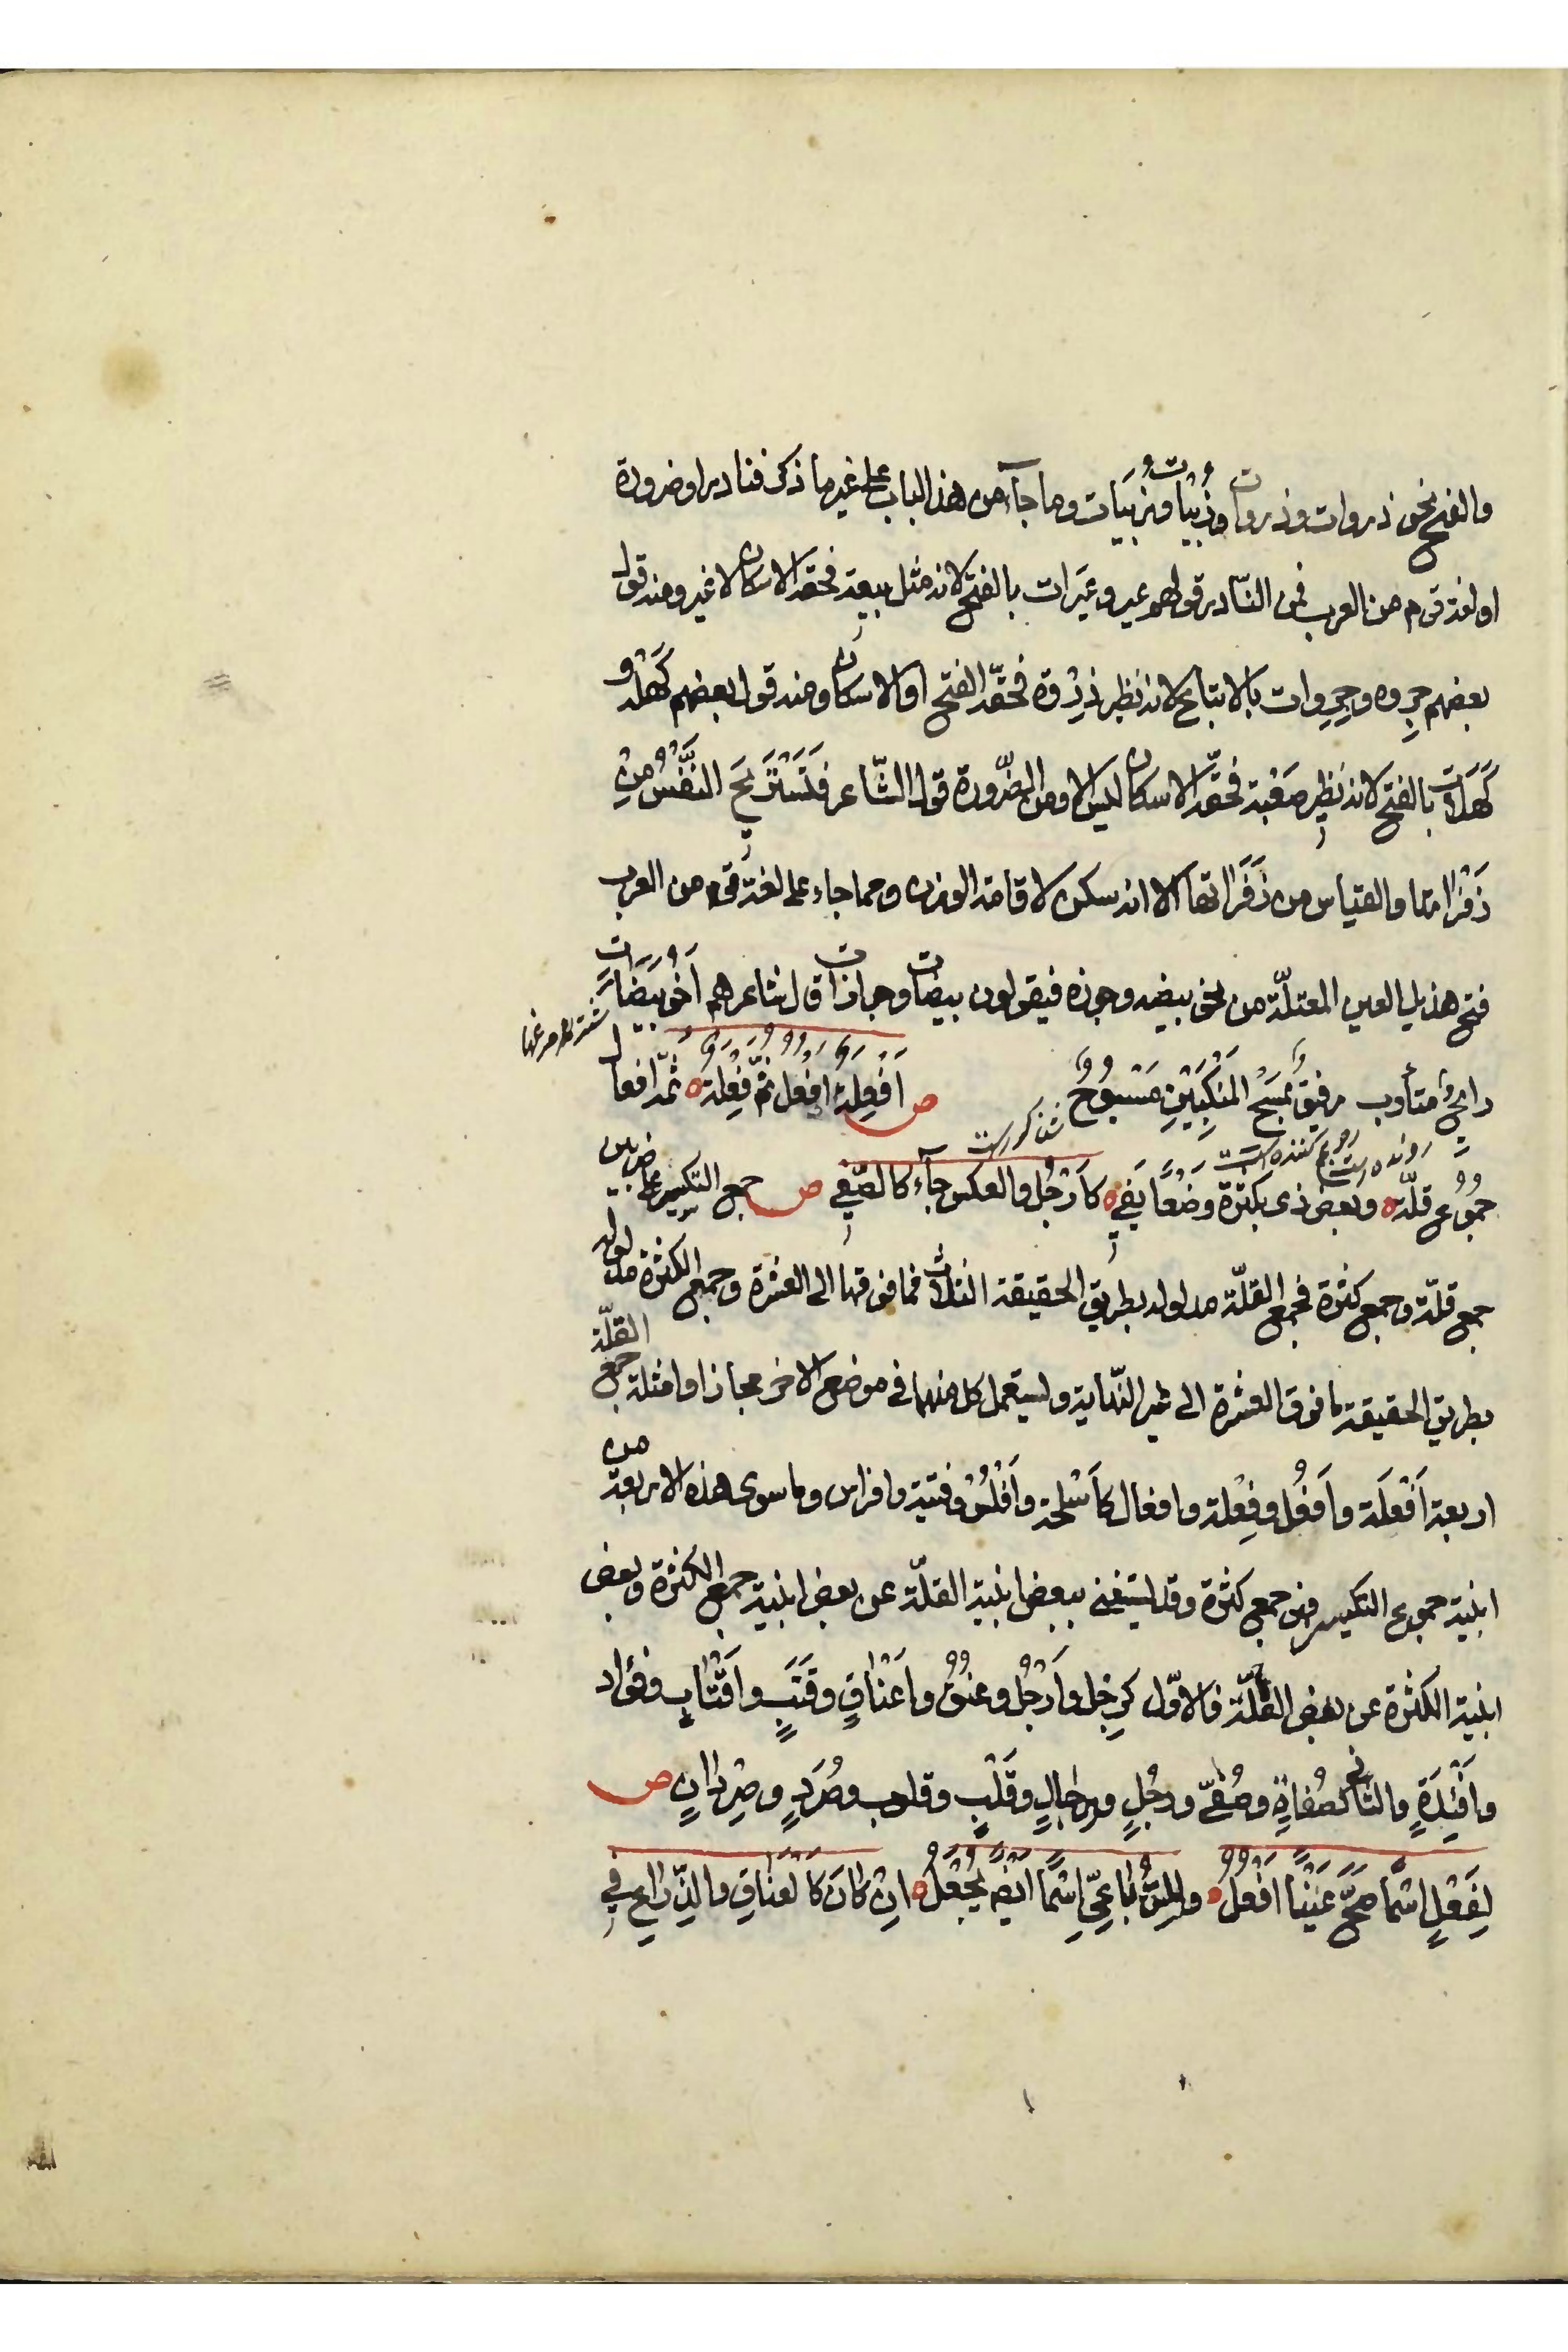 والفتح نحو ذروات وذروات وزبيات وزبيات وما جآء من هذا الباب على غير ما ذكر فنادر او ضرورة
او لغة قوم من العرب فمن النّادر قولهم عير وعيَرات بالفتح لانه مثل بيعة فحقه الاسكان لا غير ومنه قول
بعضهم جِروه وجِرِوات بالاتباع لانه نظير ذِرْوة فحقّه الفتح او الاسكان ومنه قول بعضهم كَهْلة و
كَهَلات بالفتح لانه نظير صَعْبة فحقّه الاسكان ليس الا ومن الضّرورة قول الشّاعر فَتَسْتَرِيحَ النَّفْسُ مِنْ
زَفْراتها والقياس من زَفَراتها الا انه سكن لاقامة الوزن ومما جاء على لغة قوم من العرب
فتح هذيل العين المعتلّة من نحو بيضه وجوزه فيقولون بيضات وجوازات قال شاعرهم اَخُو بَيَضَاتٍ
رايِحٌ متأوب رفيقٌ بمَسْحِ المَنْكِبَيْنِ مَسْبُوحُ ص اَفْعِلةٌ اَفْعُل ثُمَّ فِعْلَه ثُمَّ افعال
جُمُوع قلّه وبعض ذى بكثرة وَضْعًا يَفِى كاَرْجُل والعكس جآء كالصّفى ص جمع التكسير على ضربين
جمع قلّة وجمع كثرة فجمع القلّة مدلوله بطريق الحقيقة الثلاث فما فوقها الى العشرة وجمع الكثرة مدلوله
بطريق الحقيقة ما فوق العشرة الى غير النّهاية ويستعمل كل منهما فى موضع الاخر مجازا وامثلة جمع القلّة
اربعة اَفْعَلَة واَفعُل وفِعْلة وافعال كاَسْلحة واَفْلُس وفتية وافراس وما سوى هذه الاربعة من
ابنية جموع التكسير فهى جمع كثرة وقد يستغنى ببعض ابنية القلّة عن بعض ابنية جمع الكثرة وببعض
ابنية الكثرة عن بعض القلّة فالاوّل كرِجْل واَرْجُل وعنُق واَعْنَاقٍ وقَتَبٍ واَقْتَابٍ وفؤاد
واَفْئِدَةٍ والثانى كصُفاةٍ وصُفىّ ورجُلٍ ورِجَالٍ وقَلْبٍ وقلوب وصُرَدٍ وصِرْدانٍ ص
لِفَعْلٍ اسْمًا صحَّ عَيْنًا اَفْعُلُ وللرُّباعِىِّ اِسْمًا ايْضًا يُجْعَلُ اِنْ كانَ كالعَناقِ والذِّراعِ فى